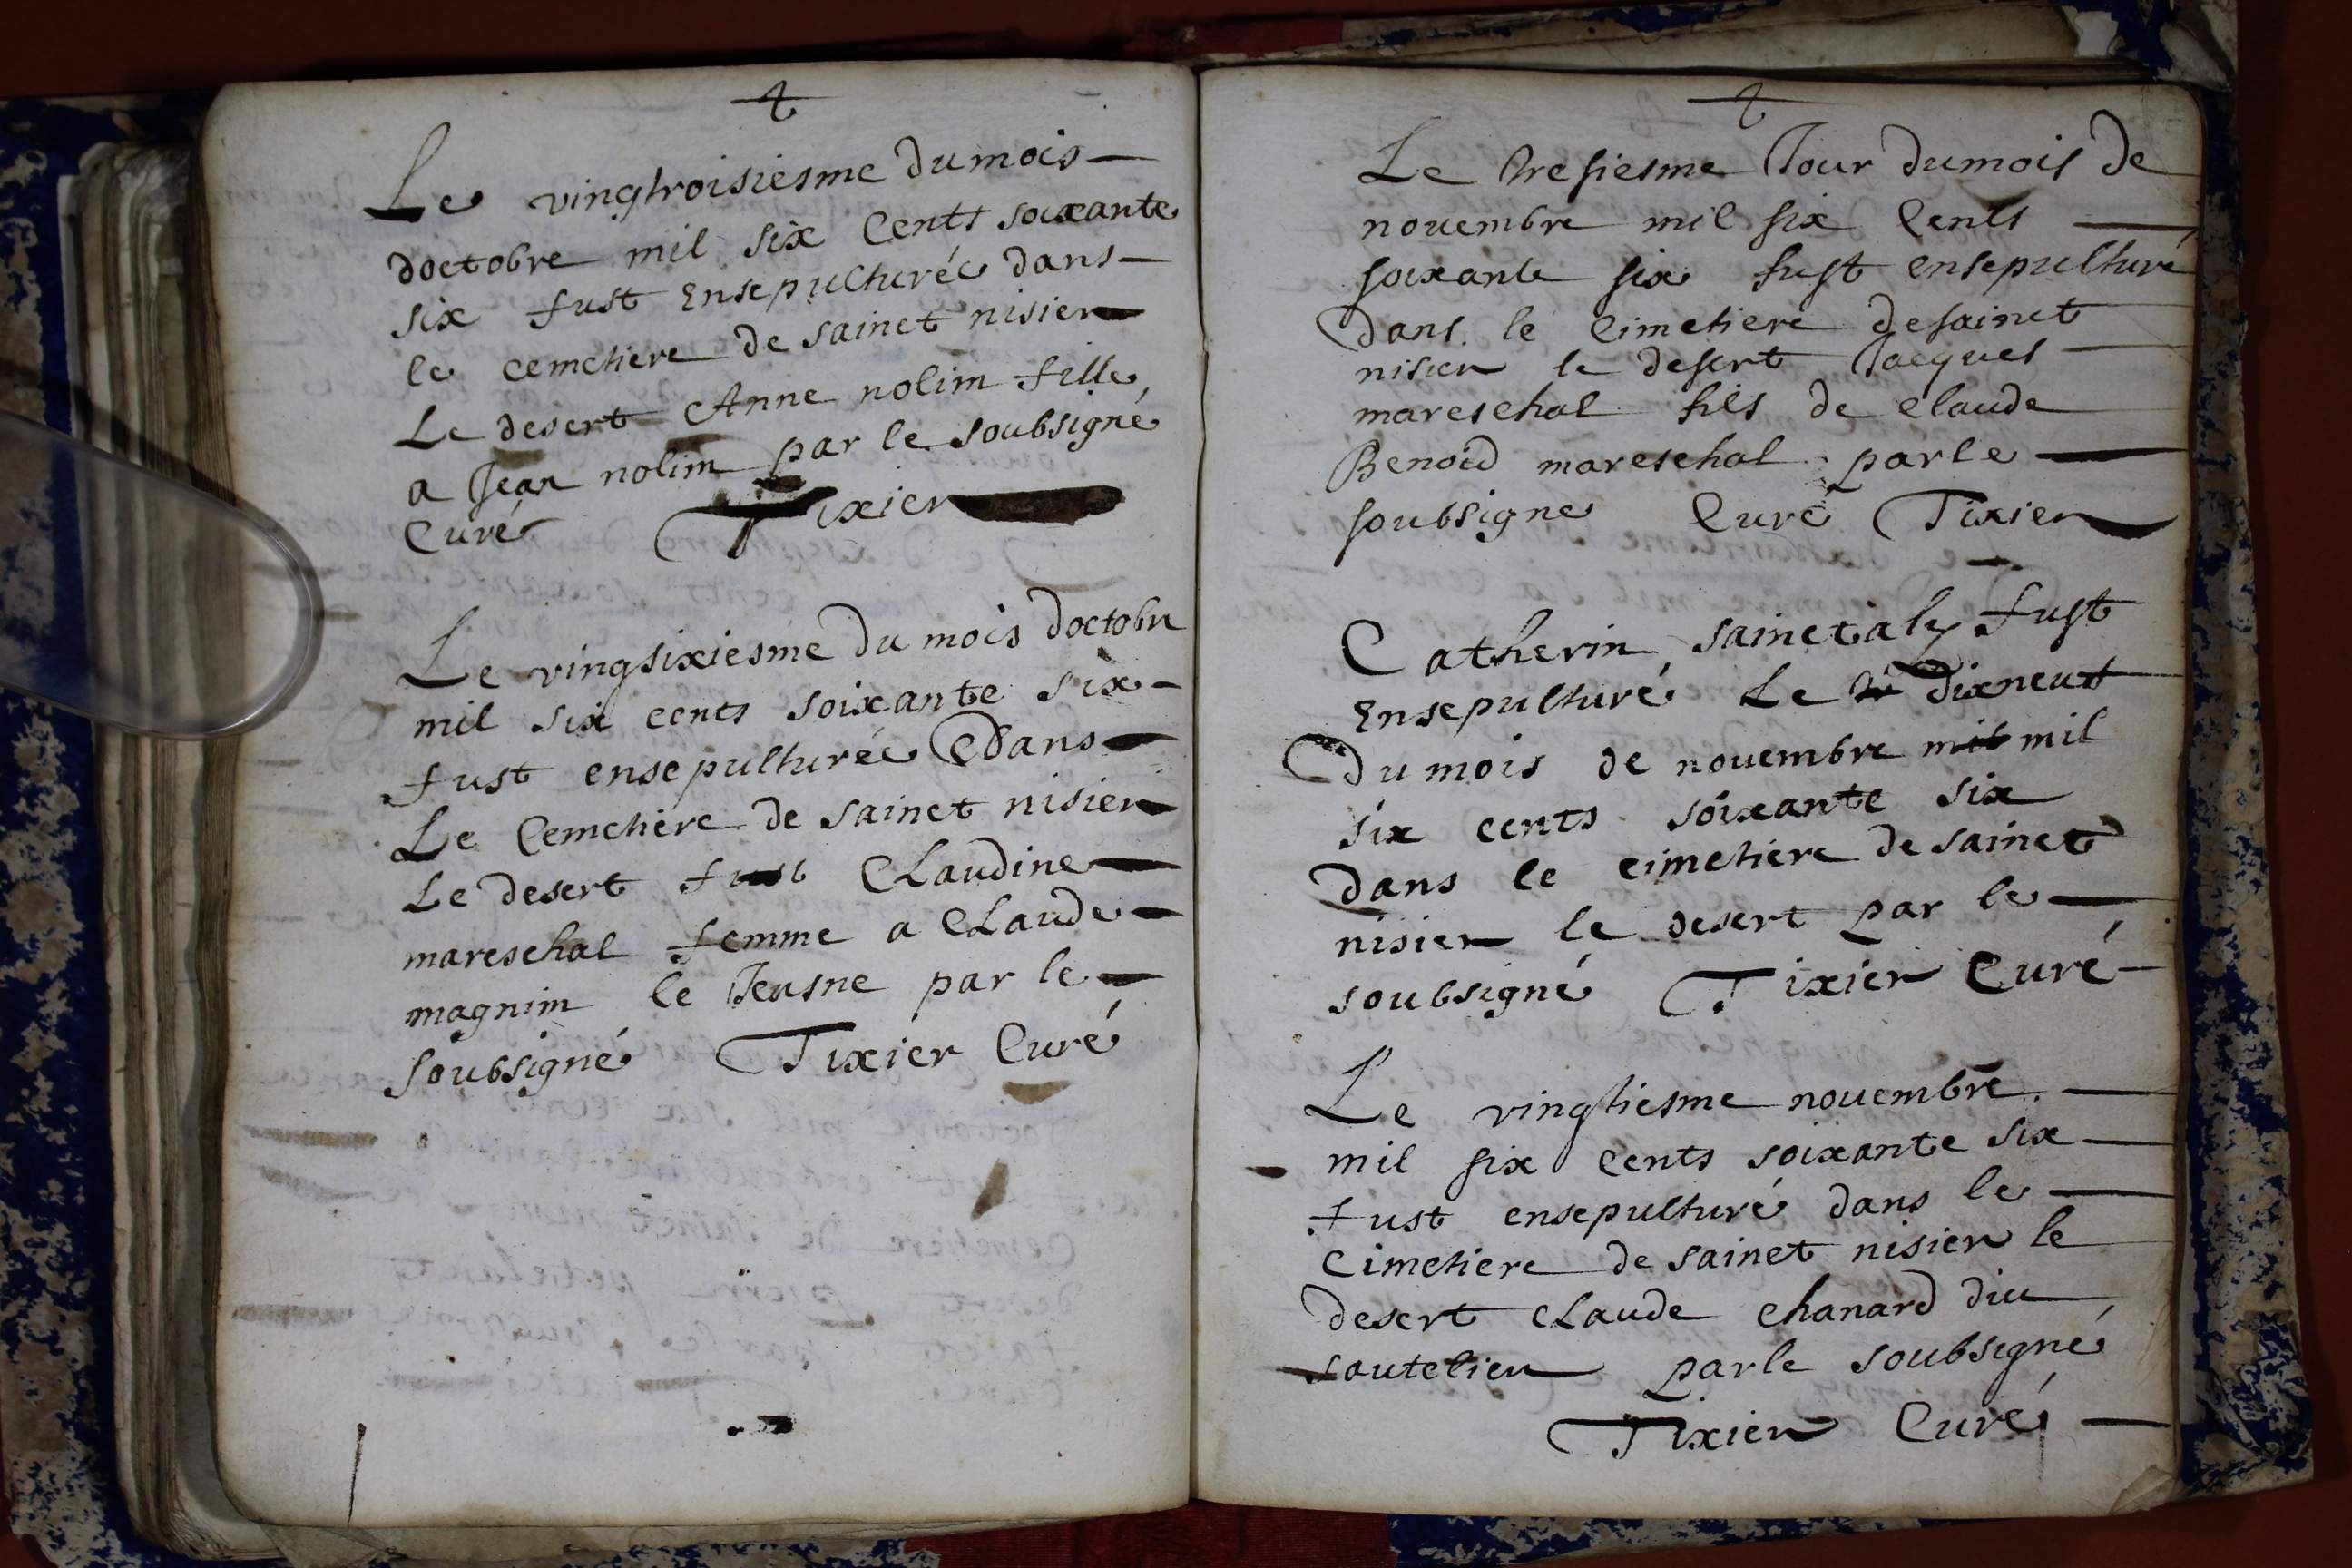 Le vingtroisiesme du mois
doctobre mil six cents soixante
six fust ensepulturée dans
le cemetiere de sainct nisier
Le desert Anne nolim fille
a Jean nolim par le soubsigné
Curé Tixier
Le vingsixiesme du mois doctobre
mil six cents soixante six
fust ensepulturée dans
Le Cemetiere de sainct nisier
Le desert fust Claudine
mareschal femme a Claude
magnim le Jeusne par le
soubsigné Tixier Curé
Le tresiesme Jour du mois de
novembre mil six Cents
soixante six fust ensepulturé
dans le Cimetiere de sainct
nisier le desert Jacques
mareschal fils de claude
Benoid mareschal par le
soubsigné Curé Tixier
Catherin sainctaly fust
Ensepulturé Le dixneuf
du mois de novembre mil mil
six cents soixante six
dans le cimetiere de sainct
nisier le desert par le
soubsigné Tixier Curé
Le vingtiesme novembre
mil six Cents soixante six
fust ensepulturé dans le
Cimetiere de sainct nisier le
desert Claude chanard dict
soutelier par le soubsigné
Tixier Curé